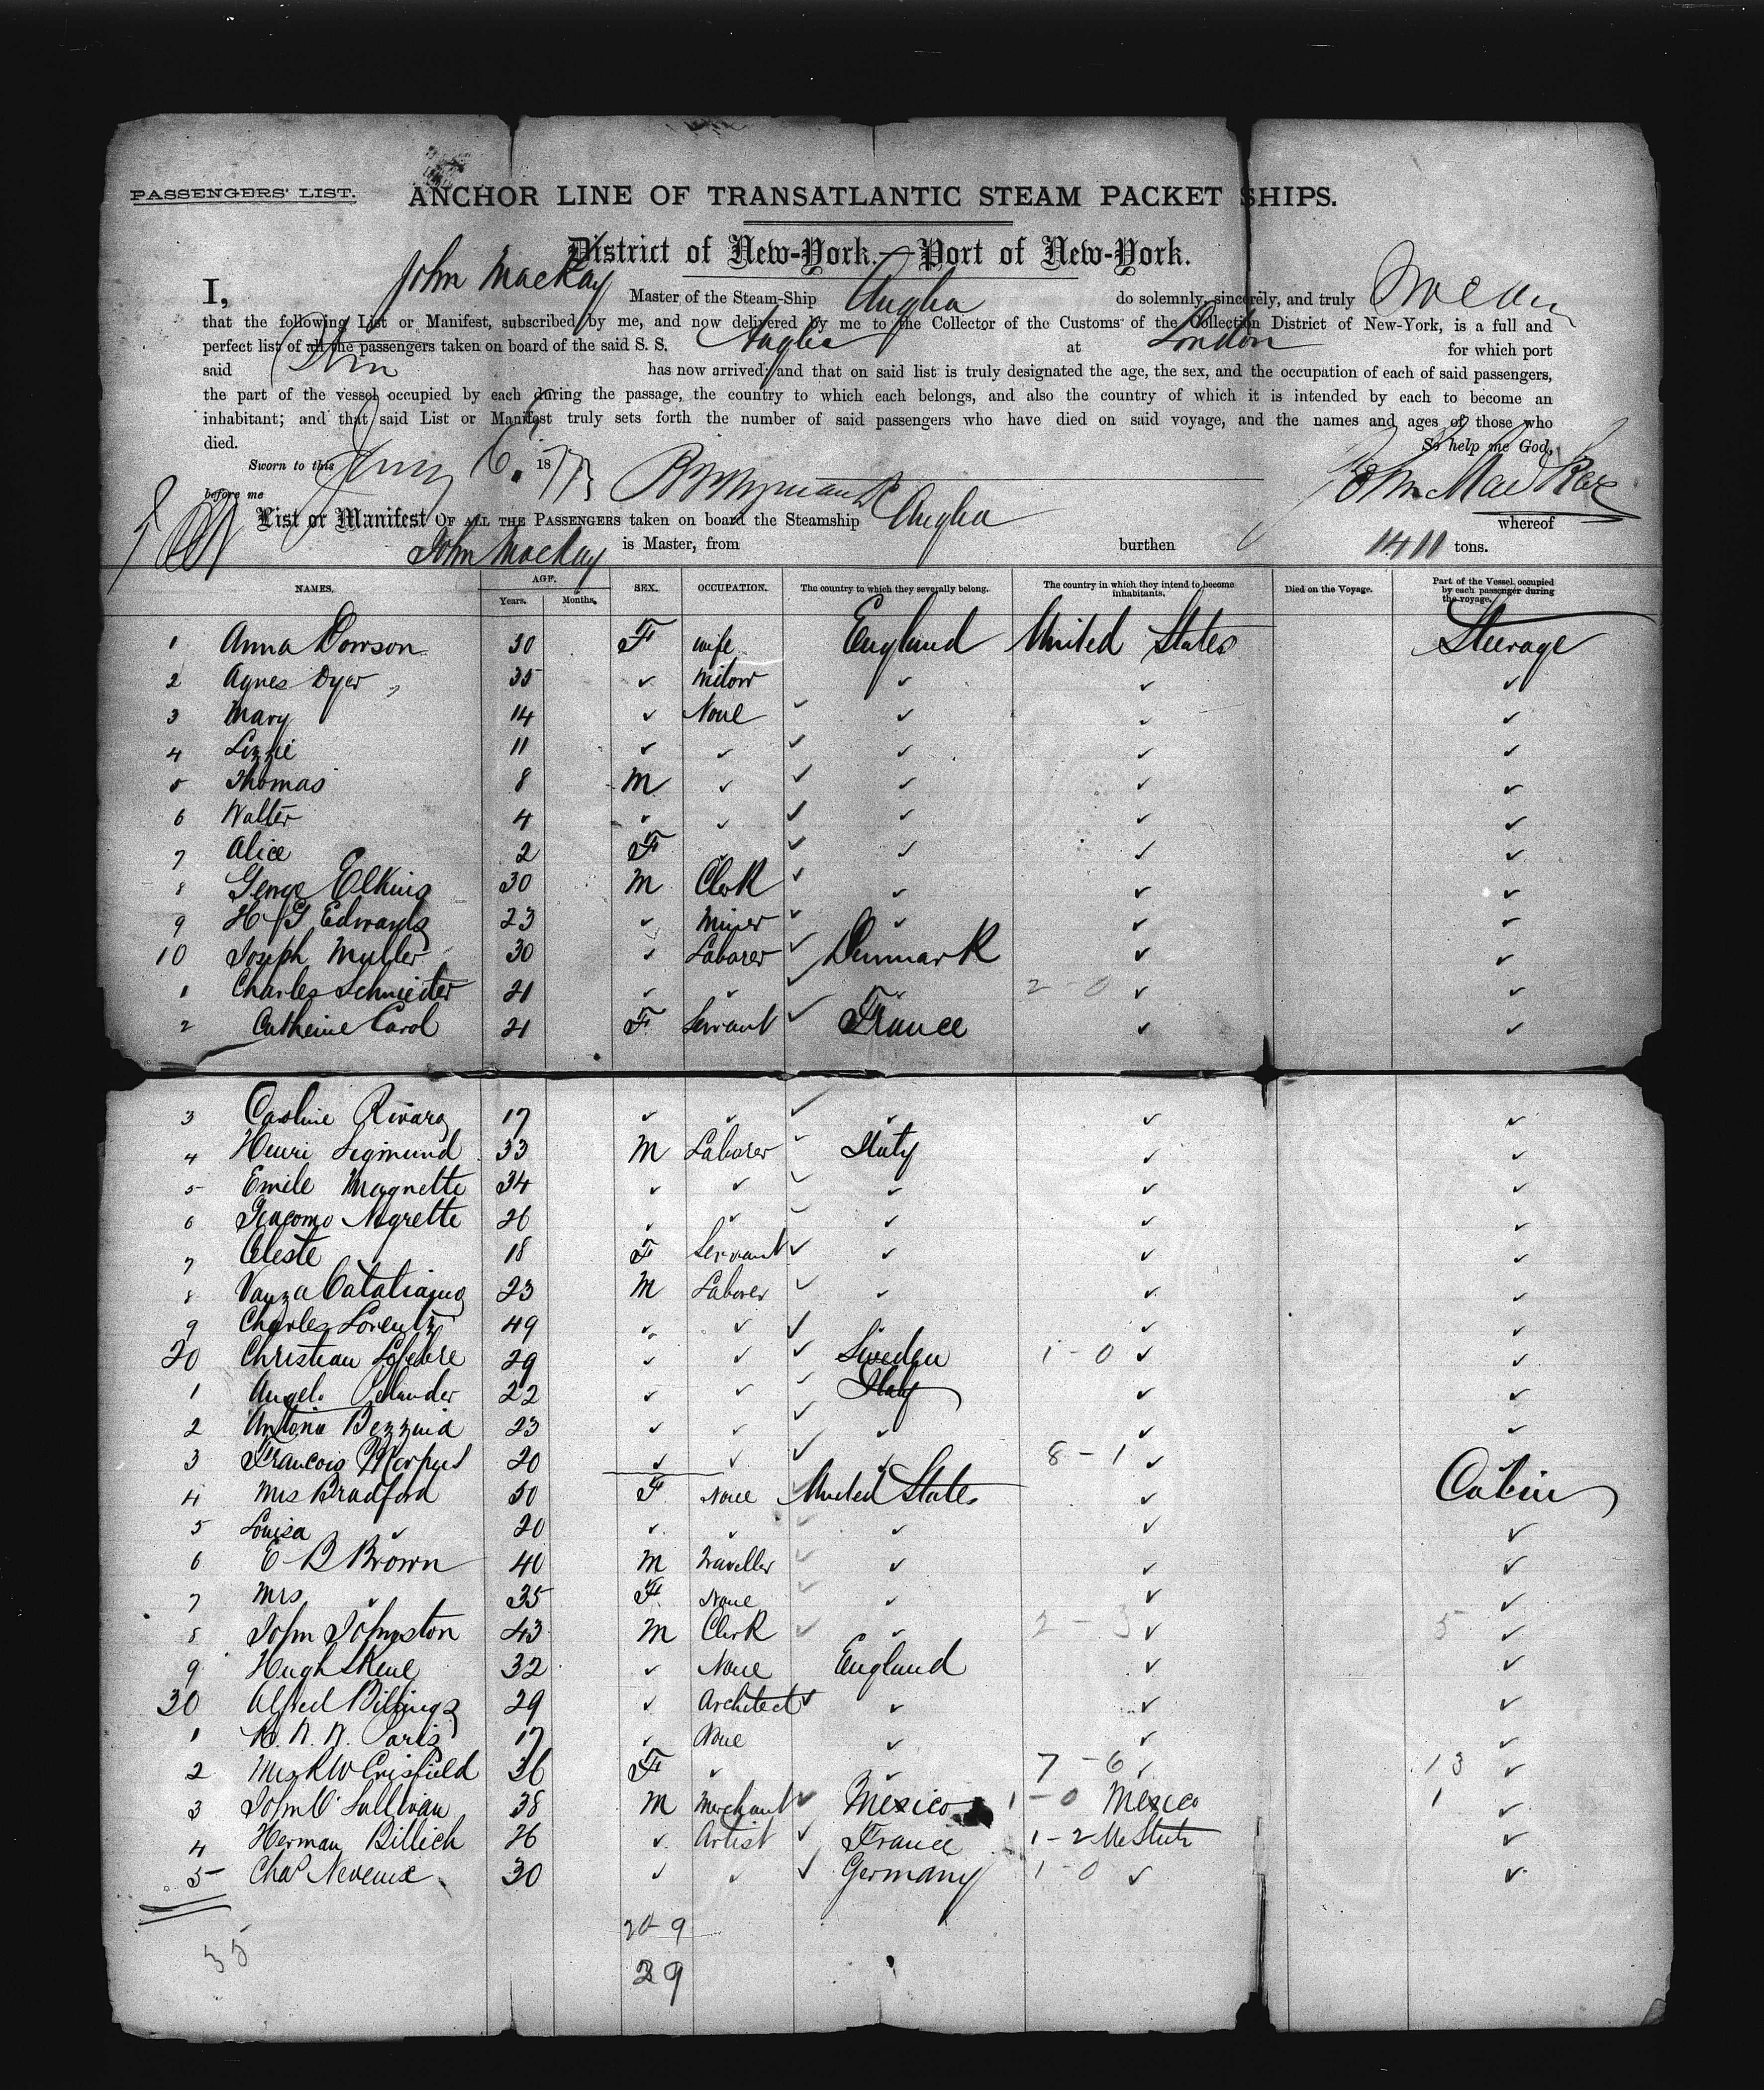 PASSENGERS' LIST. ANCHOR LINE OF TRANSATLANTIC STEAM PACKET SHIPS.
District of New-York.—Port of New-York.
I, John Mackay Master of the Steam-Ship Anglia do solemnly, sincerely, and truly swear
that the following List or Manifest, subscribed by me, and now delivered by me to the Collector of the Customs of the Collection District of New-York, is a full and
perfect list of all the passengers taken on board of the said S. S. Anglia at London for which port
said has now arrived; and that on said list is truly designated the age, the sex, and the occupation of each of said passengers,
the part of the vessel occupied by each during the passage, the country to which each belongs, and also the country of which it is intended by each to become an
inhabitant; and that said List or Manifest truly sets forth the number of said passengers who have died on said voyage, and the names and ages of those who
died. So help me God,
Sworn to this 6. 1873 John Mackay
before me
List or Manifest OF ALL THE PASSENGERS taken on board the Steamship Anglia whereof
John Mackay is Master, from burthen 1411 tons.
NAMES. AGE. Years. Months. SEX. OCCUPATION. The country to which they severally belong. The country in which they intend to become inhabitants. Died on the Voyage. Part of the Vessel occupied by each passenger during the voyage.
1 Anna Dowson 30 F wife England United States Steerage
2 Agnes Dyer 35 ✓ Widow ✓ ✓ ✓
3 Mary 14 ✓ None ✓ ✓ ✓ ✓
4 Lizzie 11 ✓ ✓ ✓ ✓ ✓ ✓
5 Thomas 8 M ✓ ✓ ✓ ✓ ✓
6 Walter 4 ✓ ✓ ✓ ✓ ✓ ✓
7 Alice 2 F ✓ ✓ ✓ ✓ ✓
8 George Elking 30 M Clerk ✓ ✓ ✓ ✓
9 H G Edwards 23 ✓ Miner ✓ ✓ ✓ ✓
10 Joseph Muller 30 ✓ Laborer ✓ Denmark ✓ ✓
1 Charles Schmieter 21 ✓ ✓ ✓ ✓ 2-0 ✓ ✓
2 Catheine Carol 21 F Servant ✓ France ✓ ✓
3 Caroline Rivara 17 ✓ ✓ ✓ ✓ ✓ ✓
4 Henri Sigmund 33 M Laborer ✓ Italy ✓ ✓
5 Emile Magnette 34 ✓ ✓ ✓ ✓ ✓ ✓
6 Giacomo Nigrette 26 ✓ ✓ ✓ ✓ ✓ ✓
7 Celeste 18 F Servant ✓ ✓ ✓ ✓
8 Vanza 23 M Laborer ✓ ✓ ✓ ✓
9 Charles Lorentz 49 ✓ ✓ ✓ ✓ ✓
20 Christian Lofebre 29 ✓ ✓ ✓ Sweden 1-0 ✓ ✓
1 Angelo 22 ✓ ✓ ✓ Italy ✓ ✓
2 Antonio Bezznia 23 ✓ ✓ ✓ ✓ ✓ ✓
3 Francois 20 ✓ ✓ ✓ ✓ 8-1 ✓
4 Mrs Bradford 50 F None United States ✓ Cabin
5 Louisa ✓ 20 ✓ ✓ ✓ ✓ ✓ ✓
6 E B Brown 40 M Traveller ✓ ✓ ✓ ✓
7 Mrs ✓ 35 F None ✓ ✓ ✓ ✓
8 John Johnston 43 M Clerk ✓ ✓ 2-3 ✓ 5 ✓
9 Hugh Skene 32 ✓ None England ✓ ✓
30 Alfred Billings 29 ✓ Architect ✓ ✓ ✓ ✓
1 W. Paris 17 ✓ None ✓ ✓ ✓
2 Mrs R W Crisfield 36 F ✓ ✓ 7-6 ✓ 13 ✓
3 John O'Sullivan 38 M Merchant ✓ Mexico 1-0 Mexico 1 ✓
4 Herman Billich 26 ✓ Artist ✓ France 1-2 U States ✓
5 Chas Neveux 30 ✓ ✓ ✓ Germany 1-0 ✓ ✓
20-9
35
29